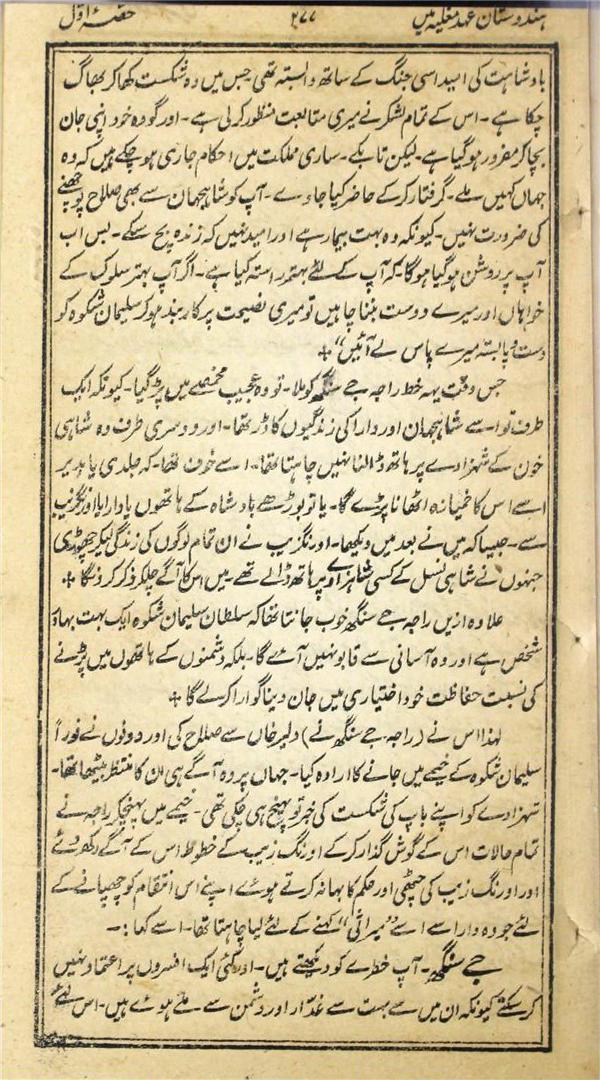 ہندوستان عہد مغلیہ میں ۲۷۷ حصہ اول
بادشاہت کی امید اسی جنگ کے ساتھ وابستہ تھی جس میں وہ شکست کھا کر بھاگ
چکا ہے۔ اس کے تمام لشکر نے میری متابعت منظور کر لی ہے۔ اور گو وہ خود اپنی جان
بچا کر مفرور ہو گیا ہے۔ لیکن تا بکے۔ ساری مملکت میں احکام جاری ہو چکے ہیں کہ وہ
جہاں کہیں ملے۔ گرفتار کر کے حاضر کیا جاوے۔ آپ کو شاہجہان سے بھی صلاح پوچھنے
کی ضرورت نہیں۔ کیونکہ وہ بہت بیمار ہے اور امید نہیں کہ زندہ بچ سکے۔ بس اب
آپ پر روشن ہو گیا ہوگا۔ کہ آپ کے لئے بہتر راستہ کیا ہے۔ اگر آپ بہتر سلوک کے
خواہاں اور میرے دوست بننا چاہیں تو میری نصیحت پر کاربند ہو کر سلیمان شکوہ کو
دست و پا بستہ میرے پاس لے آئیں“ ٭
جس وقت یہہ خط راجہ جے سنگھ کو ملا۔ تو وہ عجیب مخمصے میں پڑ گیا۔ کیونکہ ایک
طرف تو اسے شاہجہان اور دارا کی زندگیوں کا ڈر تھا۔ اور دوسری طرف وہ شاہی
خون کے شہزادے پر ہاتھ ڈالنا نہیں چاہتا تھا۔ اسے خوف تھا۔ کہ جلدی یا بدیر
اسے اس کا خمیازہ اٹھانا پڑے گا۔ یا تو بوڑھے بادشاہ کے ہاتھوں یا دارا یا اورنگزیب
سے۔ جیسا کہ میں نے بعد میں دیکھا۔ اورنگزیب نے ان تمام لوگوں کی زندگی لیکر چھوڑی
جنہوں نے شاہی نسل کے کسی شاہزادے پر ہاتھ ڈالے تھے۔ میں اس کا آگے چلکر ذکر کرونگا ٭
علاوہ ازیں راجہ جے سنگھ خوب جانتا تھا کہ سلطان سلیمان شکوہ ایک بہت بہادر
شخص ہے اور وہ آسانی سے قابو نہیں آئے گا۔ بلکہ دشمنوں کے ہاتھوں میں پڑنے
کی نسبت حفاظت خود اختیاری میں جان دینا گوارا کرلے گا ٭
لہذا اس نے (راجہ جے سنگھ نے) دلیر خاں سے صلاح کی اور دونوں نے فوراً
سلیمان شکوہ کے خیمے میں جانے کا ارادہ کیا۔ جہاں پر وہ آگے ہی ان کا منتظر بیٹھا تھا۔
شہزادے کو اپنے باپ کی شکست کی خبر تو پہنچ ہی چکی تھی۔ خیمے میں پہنچکر راجہ نے
تمام حالات اس کے گوش گذار کر کے اورنگ زیب کے خطوط اس کے آگے رکھ دئے
اور اورنگ زیب کی چٹھی اور حکم کا بہانہ کرتے ہوئے اپنے اس انتقام کو چھپانے کے
لئے جو وہ دارا سے اسے ”میراثی“ کہنے کے لئے لیا چاہتا تھا۔ اسے کہا:۔
جے سنگھ۔ آپ خطرے کو دیکھتے ہیں۔ اور کئی ایک افسروں پر اعتماد نہیں
کر سکتے کیونکہ ان میں سے بہت سے غدار اور دشمن سے ملے ہوئے ہیں۔ اس لئے